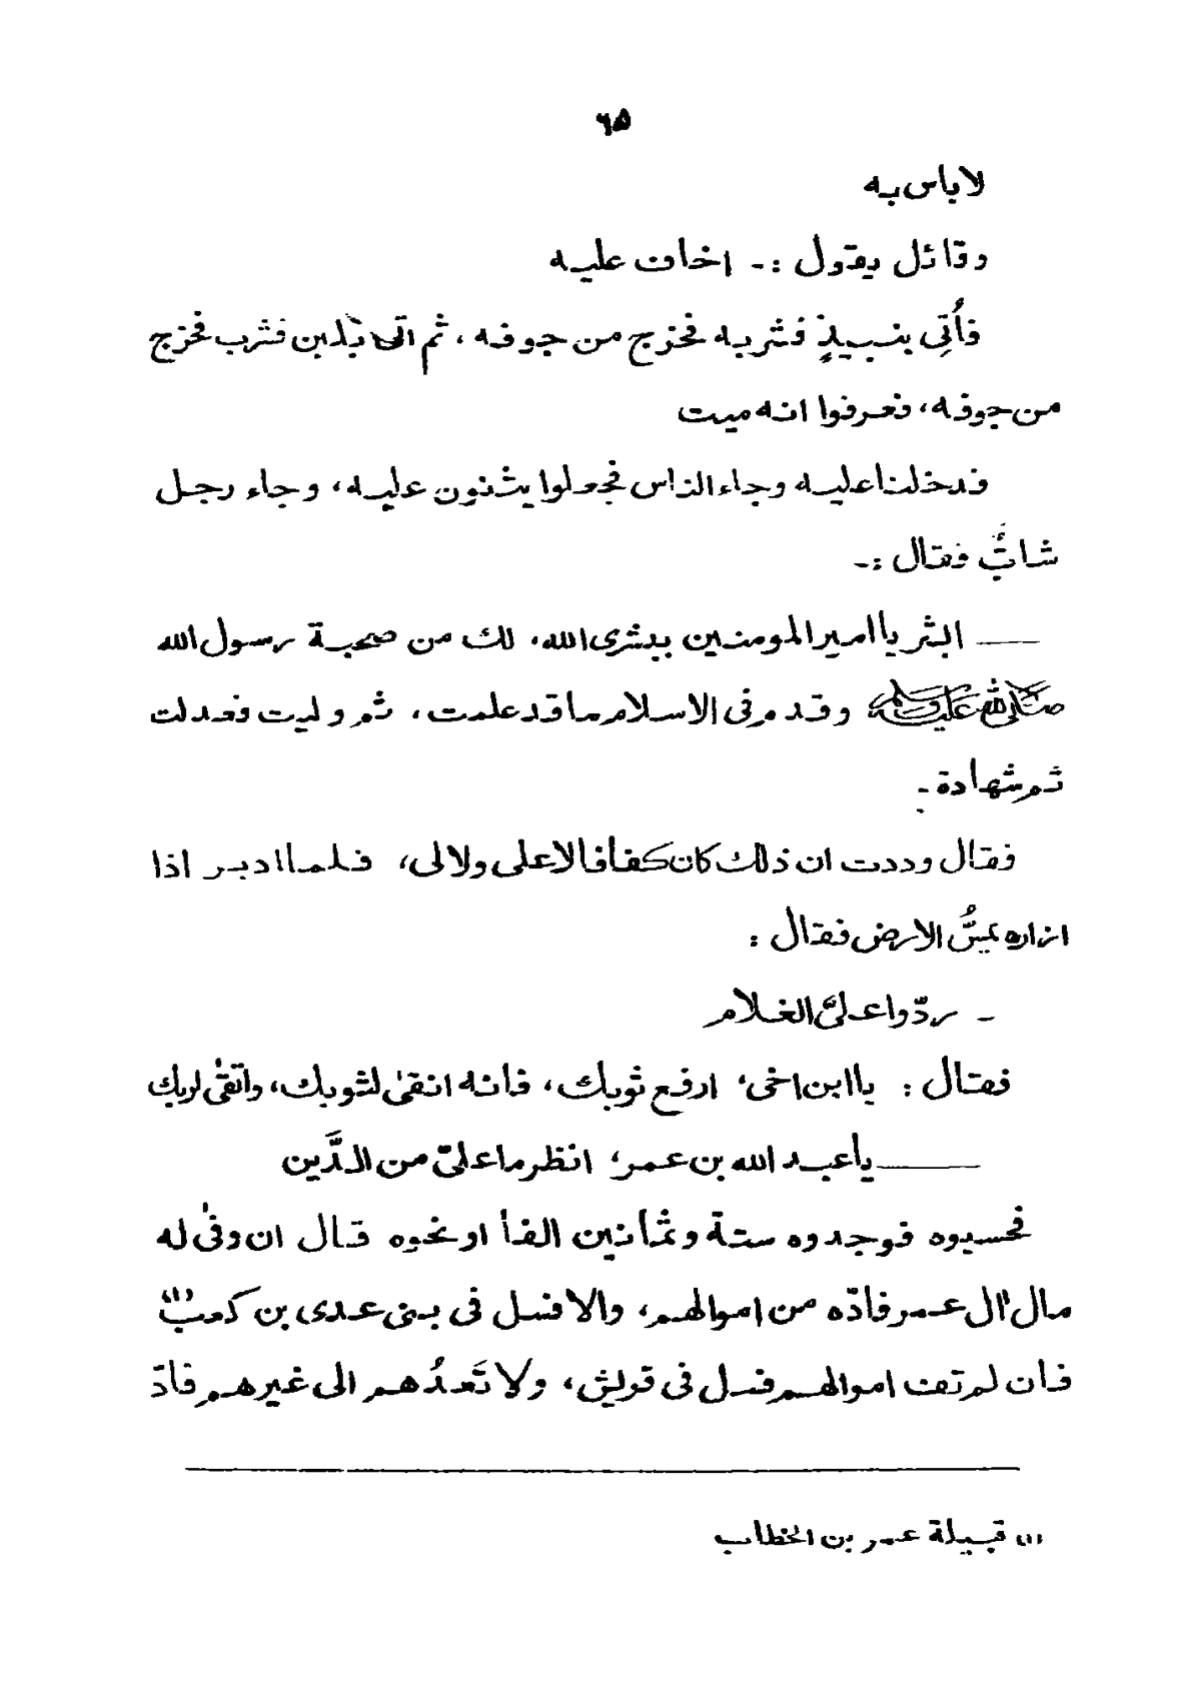 ٦٥
لاباس به
وقائل يقول :- اخاف عليه
فأُتِى بنبيذٍ فشربه فخرج من جوفه، ثم اتى بلبن فشرب فخرج
من جوفه، فعرفوا انه ميت
فدخلنا عليه وجاء الناس فجعلوا يثنون عليه، وجاء رجل
شابٌّ فقال :-
ـــ ابشر يا امير المومنين ببشرى الله، لك من صحبة رسول الله
صلى الله عليه وسلم وقدم فى الاسلام ما قد علمت، ثم وليت فعدلت
ثم شهادة -
فقال وددت ان ذلك كان كفافا لا على ولا لى، فلما ادبر اذا
ازاره يمسُّ الارض فقال :
- ردّوا علىَّ الغلام
فقال : يا ابن اخى، ارفع ثوبك، فانه انقىٰ لثوبك، واتقىٰ لربك
ـــ يا عبد الله بن عمر، انظر ما علىّ من الدَّين
فحسبوه فوجدوه ستة وثمانين الفا او نحوه قال ان وفىٰ له
مال اٰل عمر فادّه من اموالهم، والا فسل فى بنى عدى بن كعب (١)
فان لم تف اموالهم فسل فى قريش، ولا تَعدُهم الى غيرهم فادّ
(١) قبيلة عمر بن الخطاب